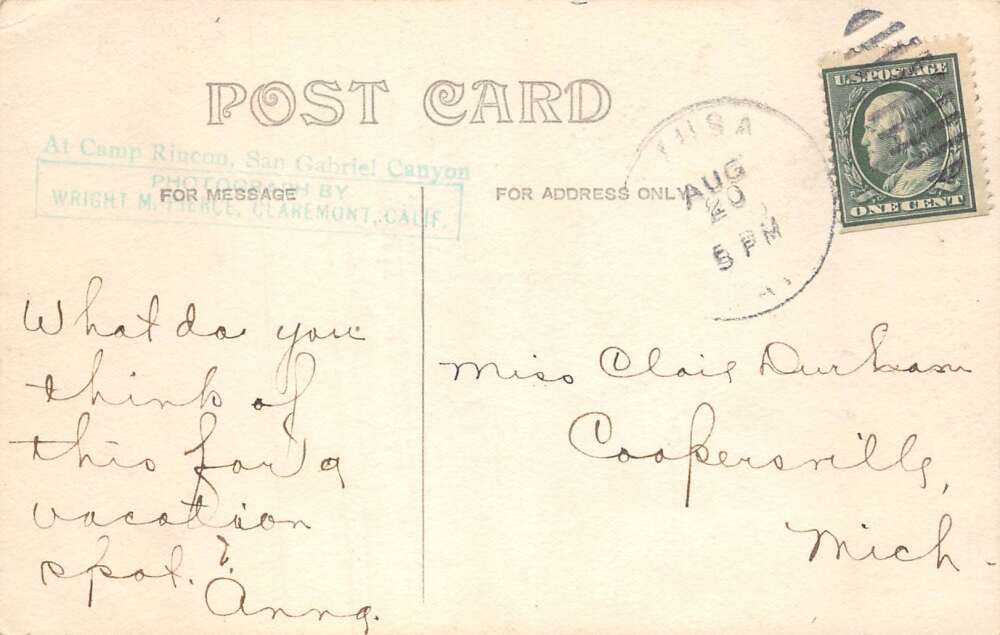 POST CARD
At Camp Rincon, San Gabriel Canyon
PHOTOGRAPH BY
WRIGHT M. PIERCE, CLAREMONT, CALIF.
FOR MESSAGE
FOR ADDRESS ONLY
AUG
20
5 PM
U.S. POSTAGE
ONE CENT
What do you
think of
this for a
vacation
spot.?
Anna.
Miss Clair Durham
Coopersville,
Mich.